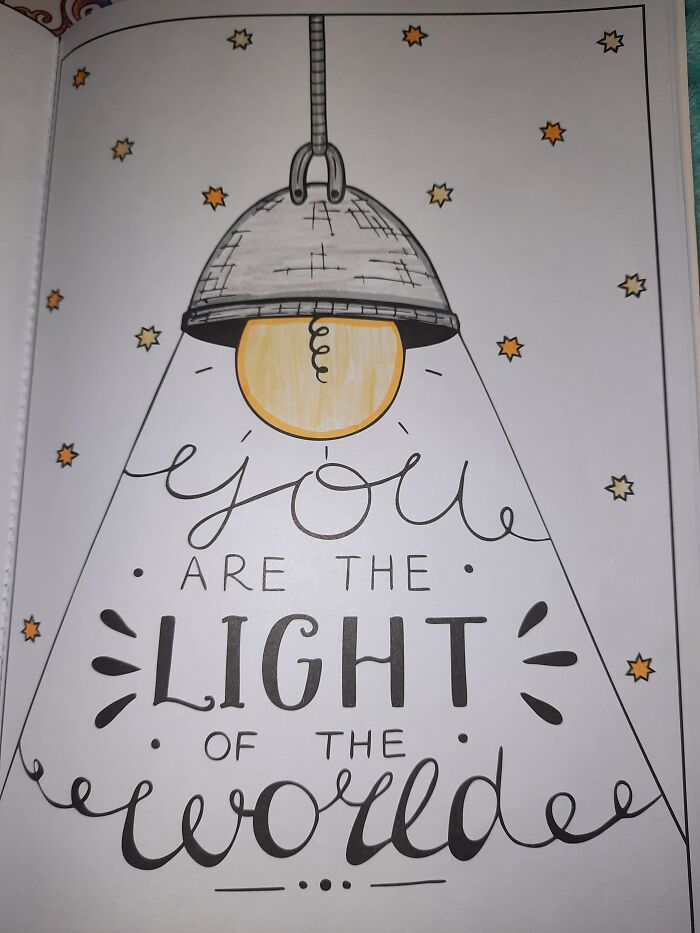 you
ARE THE
LIGHT
OF THE
world